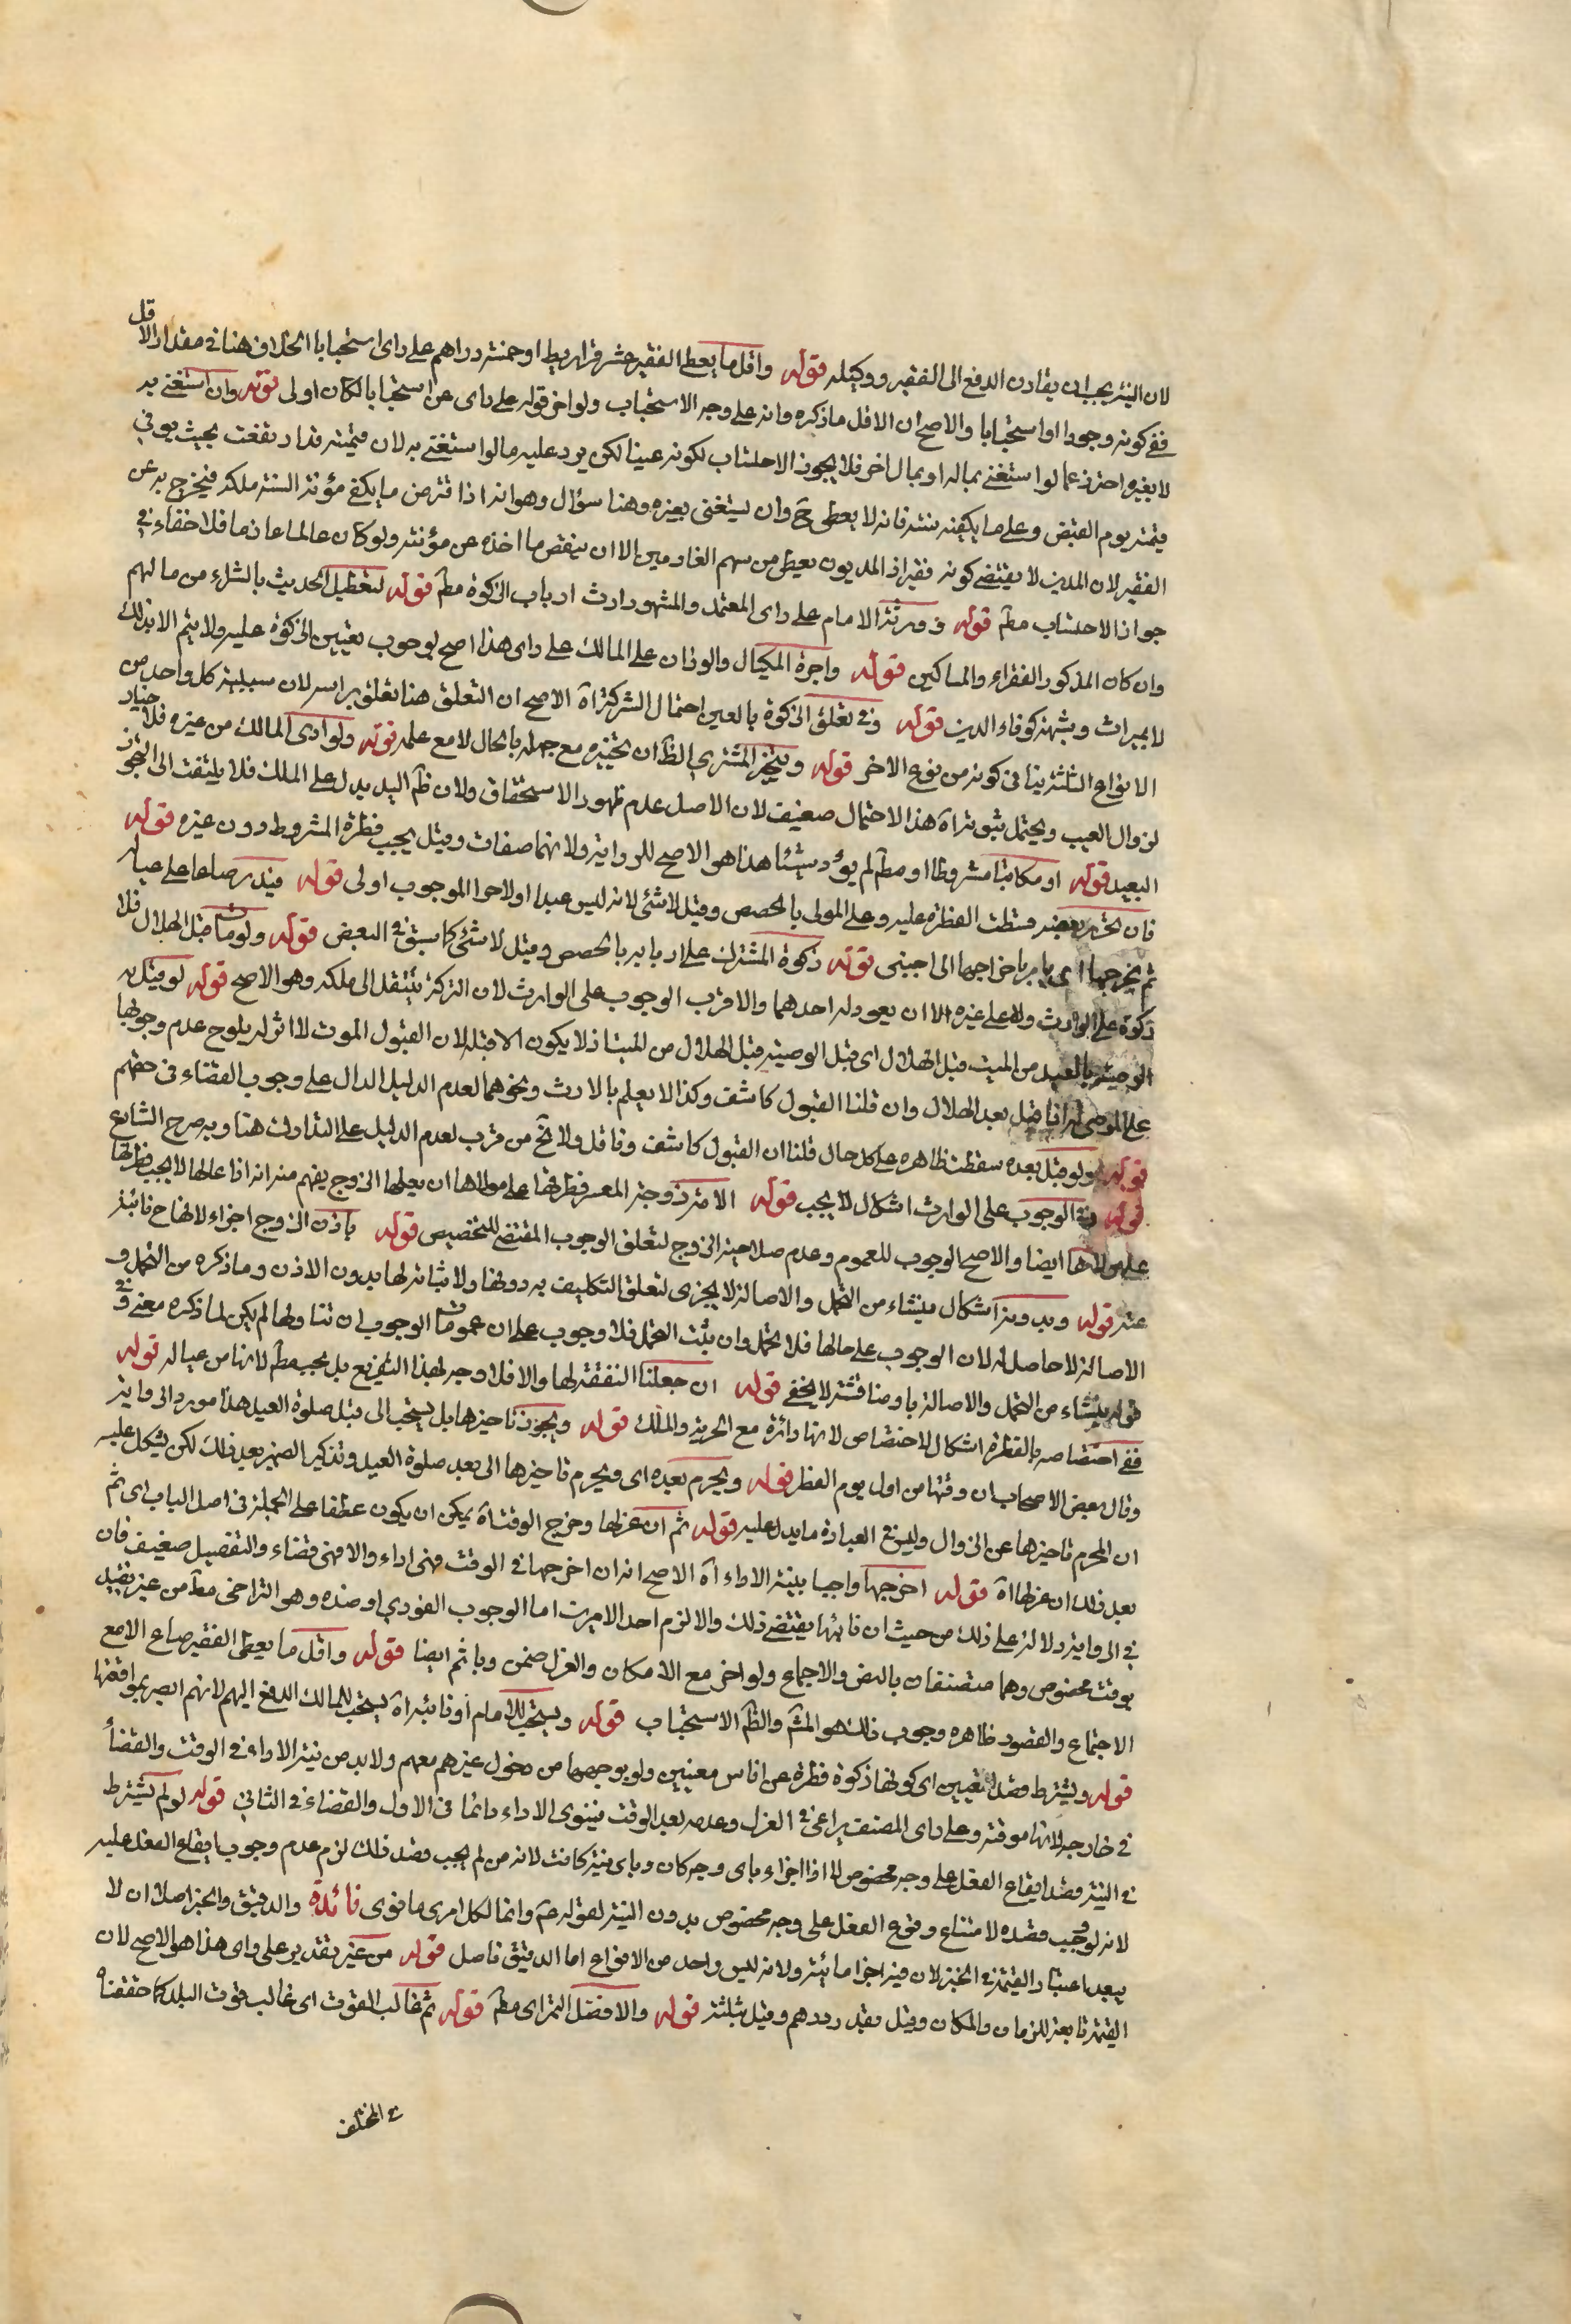 لان النية يجب ان يقارن الدفع الى الفقير ووكيله قوله واقل ما يعطى الفقير عشر قراريط او خمسة دراهم على راى استحبابا الخلاف هنا فى مقدار الاقل
ففى كونه وجوبا او استحبابا والاصح ان الاقل ما ذكره وانه على وجه الاستحباب ولو اخر قوله على راى عن استحبابا لكان اولى قوله وان استغنى به
لا بغيره احترز عما لو استغنى بماله او بمال اخر فلا يجوز الاحتساب لكونه عينا لكن يرد عليه ما لو استغنى به لان قيمته قد ارتفعت بحيث يوفى
قيمته يوم القبض وعلى ما يكفيه سنته فانه لا يعطى ح وان يستغنى بغيره وهنا سؤال وهو انه اذا من ما يكفى مؤنة السنة ملكه فيخرج به عن
الفقير لان الدين لا يقتضى كونه فقيرا ذ المديون يعطى من سهم الغارمين الا ان ينقص ما اخذه عن مؤنته ولو كان عالما عازما فلا خفاء فى
جواز الاحتساب مط قوله وورثة الامام على راى المعتمد والمشهور ارث ارباب الزكوة مط قوله لتعطيل الحديث بالشراء من مالهم
وان كان المذكور الفقراء والمساكين قوله واجرة الكيال والوزان على المالك على راى هذا اصح لوجوب تعيين الزكوة عليه ولا يتم الا بذلك
لا بميراث وشبهه كوفاء الدين قوله وفى تعلق الزكوة بالعين احتمال الشركة آه الاصح ان التعلق هنا تعلق براسه لان سببية كل واحد من
الانواع الثلثة ينافى كونه من نوع الاخر قوله ويتخير المشترى الظ ان تخييره مع جهله بالحال لا مع علمه قوله ولو ادى المالك من غيره فلا خيار
لزوال العيب ويحتمل ثبوته آه هذا الاحتمال ضعيف لان الاصل عدم ظهور الاستحقاق ولان ظ اليد يدل على الملك فلا يلتفت الى التجويز
البعيد قوله او مكاتبا مشروطا او مط لم يؤد شيئا هذا هو الاصح للرواية ولانهما صفات وقيل يجب فطرة المشروط دون غيره قوله
فان تحرر بعضه قسطت الفطرة عليه وعلى المولى بالحصص وقيل لا شئ لانه ليس عبدا ولا حرا الموجوب اولى قوله فيدير صاعا على عياله
ثم يخرجها اى يامر باخراجها الى اجنبى قوله زكوة المشترك على اربابه بالحصص وقيل لا شئ كما سبق فى البعض قوله ولو مات قبل الهلال فلا
زكوة على الوارث ولا على غيره الا ان يعود له احدهما والاقرب الوجوب على الوارث لان التركة تنتقل الى ملكه وهو الاصح قوله لو قبل به
الوصية بالعبد من الميت قبل الهلال اى قبل الوصية قبل الهلال من الميت اذ لا يكون الا قبله لان القبول الموت لا اثر له يلوح عدم وجوبها
على الموصى له اذا قبل بعد الهلال وان قلنا القبول كاشف وكذا لا يعلم بالارث ونحوهما لعدم الدليل الدال على وجوب القضاء فى حقهم
قوله ولو قبل بعده سقطت ظاهره على كل حال قلنا ان القبول كاشف وناقل ولا يخ من قرب لعدم الدليل على التدارك هنا وبه صرح الشارع
قوله وفى الوجوب على الوارث اشكال لا يجب قوله الا مة زوجة المعسر فطرتها على مولاها ان يعلها الزوج يفهم منه انه اذا عالها لا يجب فطرتها
على مولاها ايضا والاصح الوجوب للعموم وعدم صلاحية الزوج لتعلق الوجوب المقتضى للتخصيص قوله باذن الزوج اجزاء لانها ح نائبة
عنه قوله وبدونه اشكال ينشاء من التحمل والاصالة لا يجزى لتعلق التكليف به دونها ولا نيابة لها بدون الاذن وما ذكره من التحمل و
الاصالة لا حاصل له لان الوجوب على حالها فلا تحمل وان ثبت التحمل فلا وجوب على ان عمومات الوجوب ان تناولها لم يكن لما ذكره معنى وفى
قوله ينشاء من التحمل والاصالة باو مناقشة لا يخفى قوله ان جعلنا النفقة لها والا فلا وجه لهذا التفريع بل يجب مط لانها من عياله قوله
ففى اختصاصه بالفطرة اشكال للاختصاص لانها دائرة مع الحرية والملك قوله ويجوز تاخيرها بل يستحب الى قبل صلوة العيد هذا مورد الرواية
وقال بعض الاصحاب ان وقتها من اول يوم الفطر قوله ويحرم بعده اى ويحرم تاخيرها الى بعد صلوة العيد وتذكير الضمير بعد ذلك لكن يشكل عليه
ان المحرم تاخيرها عن الزوال وليس فى العبارة ما يدل عليه قوله ثم ان عزلها وخرج الوقت آه يمكن ان يكون عطفا على الجملة فى اصل الباب اى ثم
بعد ذلك ان عزلها آه قوله اخرجها واجبا بنية الاداء آه الاصح انه ان اخرجها فى الوقت فهى اداء والا فهى قضاء والتفصيل ضعيف فان
فى الرواية دلالة على ذلك من حيث ان فائتها يقتضى ذلك والا لزم احد الامرين اما الوجوب الفورى او ضده وهو التراخى مط من غير تقييد
بوقت مخصوص وهما منتفيان بالنص والاجماع ولو اخر مع الامكان والعزل ضمن وياثم ايضا قوله واقل ما يعطى الفقير صاع الا مع
الاجتماع والقصور ظاهره وجوب ذلك هو المشه والظ الاستحباب قوله ويستحب للامام او نائبه آه يستحب للمالك الدفع اليهم لانهم ابصر بمواقعها
قوله ويشترط قصد التعيين اى كونها زكوة فطرة عن اناس معينين ولو بوجه ما من دخول غيرهم معهم ولا بد من نية الاداء فى الوقت والقضاء
فى خارجه لانها موقتة وعلى راى المصنف يراعى فى العزل وعدمه بعد الوقت فينوى الاداء دائما فى الاول والقضاء فى الثانى قوله لو لم يشترط
فى النية قصد ايقاع الفعل على وجه مخصوص لا اذا اجزاء باى وجه كان وباى نية كانت لانه من لم يجب قصد ذلك لزم عدم وجوب ايقاع الفعل عليه
لانه لو وجب قصده لامتناع وقوع الفعل على وجه مخصوص بدون النية لقوله ع وانما لكل امرئ ما نوى فائدة والدقيق والخبز اصلان لا
يبعد اعتبار القيمة فى الخبز لان فيه اجزا مائية ولانه ليس واحد من الانواع اما الدقيق فاصل قوله من غير تقدير على راى هذا هو الاصح لان
القيمة تابعة للزمان والمكان وقيل بقدر درهم وقيل بثلثة قوله والافضل التمر اى مط قوله ثم غالب القوت اى غالب قوت البلد كما حققناه
فى المختلف